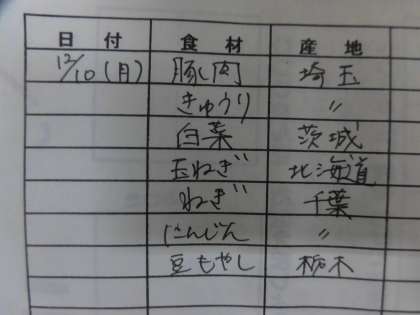 日付 食材 産地
12/10(月) 豚肉 埼玉
きゅうり 〃
白菜 茨城
玉ねぎ 北海道
ねぎ 千葉
にんじん 〃
豆もやし 栃木